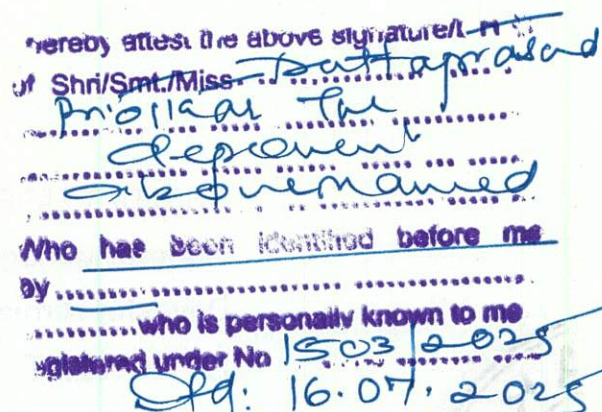 hereby attest the above signature/L
of Shri/Smt./Miss Dattaprasad
Priolkar The
deponent
abovenamed
Who has been identified before me
by
who is personally known to me
egistered under No 1503/2025
Dtd: 16.07.2025